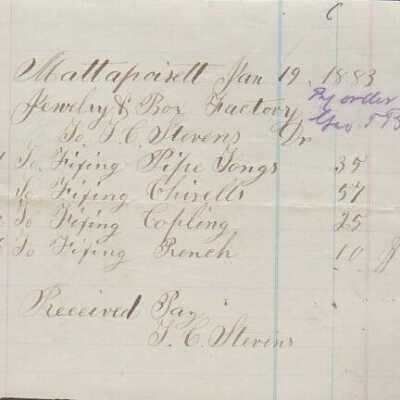 C
Mattapoisett Jan 19. 1883
Jewelry & Box Factory
To T. C. Stevens Dr
To Fixing Pipe Tongs 35
To Fixing Chisells 57
To Fixing Copling 25
To Fixing Rench 10
Received Pay
T. C. Stevens
order